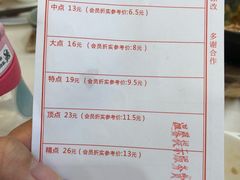 中点 13元(会员折实参考价:6.5元)
大点 16元(会员折实参考价:8元)
特点 19元(会员折实参考价:9.5元)
顶点 23元(会员折实参考价:11.5元)
精点 26元(会员折实参考价:13元)
改
多谢合作
温馨提示